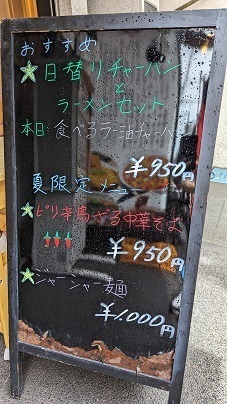 おすすめ
日替りチャーハン
と
ラーメンセット
本日:食べるラー油チャーハン
¥950円
夏限定メニュー
ピリ辛鳥ざる中華そば
¥950円
ジャージャー麺
¥1,000円